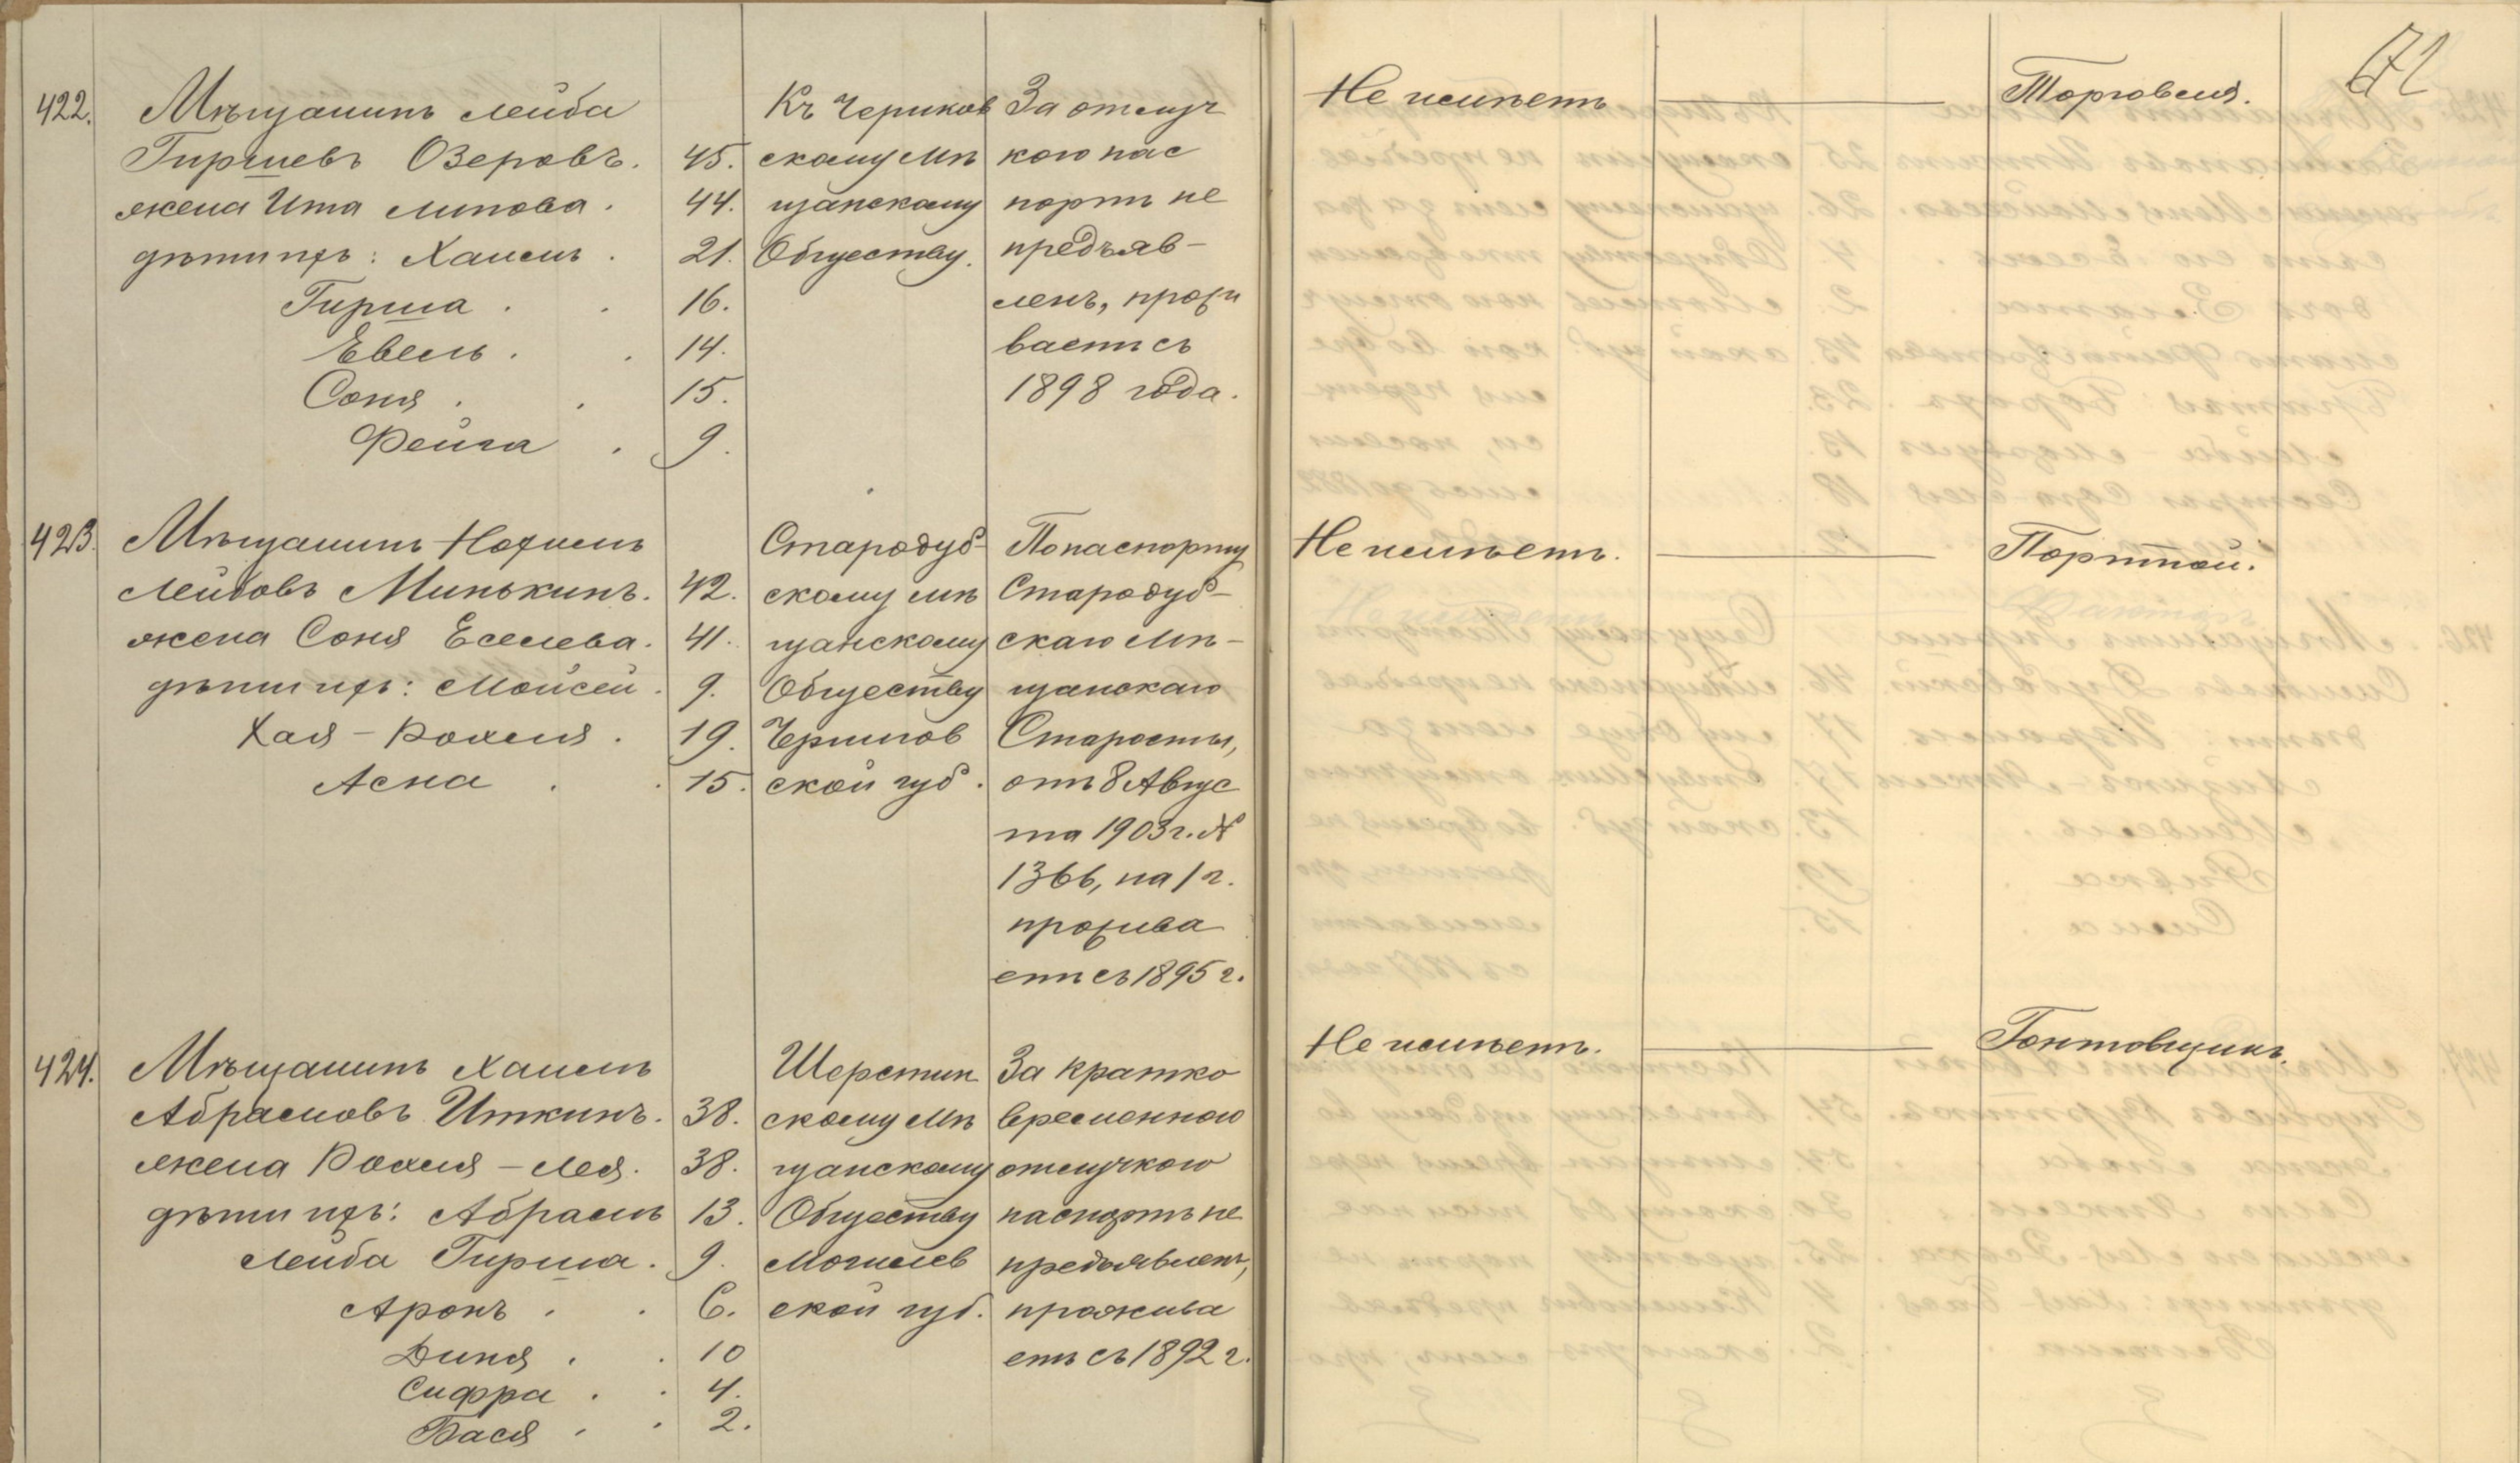 71
422. Мѣщанинъ Лейба
Гиршевъ Озеровъ. 45.
жена Ита Липова. 44.
дѣти ихъ: Хаимъ. 21.
Гирша. 16.
Евель. 14.
Соня. 15.
Фейга. 9.
Къ Чериков
скому мѣ
щанскому
Обществу.
За отлуч
кою пас
портъ не
предъяв-
ленъ, прожи
ваетъ съ
1898 года.
Не имѣетъ
Торговля.
423. Мѣщанинъ Нохимъ
Лейбовъ Минькинъ. 42.
жена Соня Еселева. 41.
дѣти ихъ: Мойсей. 9.
Хая-Рохля. 19.
Асна. 15.
Стародуб-
скому мѣ
щанскому
Обществу
Чернигов
ской губ.
По паспорту
Стародуб-
скаго мѣ-
щанскаго
Старосты,
отъ 8 Авгус
та 1903 г. №
1366, на 1 г.
прожива
етъ съ 1895 г.
Не имѣетъ.
Портной.
424. Мѣщанинъ Хаимъ
Абрамовъ Иткинъ. 38.
жена Рохля-Лея. 38.
дѣти ихъ: Абрамъ 13.
Лейба Гирша. 9.
Аронъ. 6.
Диня. 10
Сифра. 4.
Бася 2.
Шерстин
скому мѣ
щанскому
Обществу
Могилев
ской губ.
За кратко
временною
отлучкою
паспортъ не
предъявленъ,
прожива
етъ съ 1892 г.
Не имѣетъ.
Гонтовщикъ.